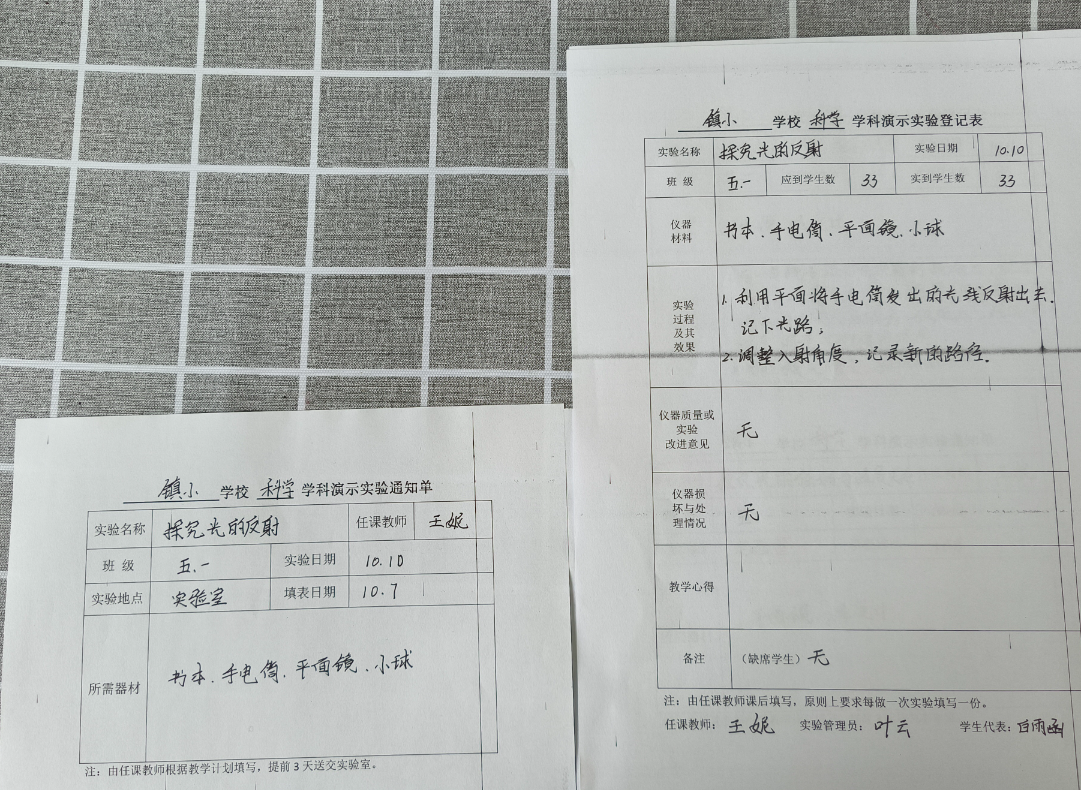 镇小 学校 科学 学科演示实验通知单
实验名称 探究光的反射 任课教师 王妮
班 级 五.一 实验日期 10.10
实验地点 实验室 填表日期 10.7
所需器材 书本、手电筒、平面镜、小球
注：由任课教师根据教学计划填写，提前 3 天送交实验室。
镇小 学校 科学 学科演示实验登记表
实验名称 探究光的反射 实验日期 10.10
班 级 五.一 应到学生数 33 实到学生数 33
仪器
材料
书本、手电筒、平面镜、小球
实验
过程
及其
效果
1. 利用平面将手电筒发出的光线反射出去.
记下光路;
2. 调整入射角度, 记录新的路径.
仪器质量或
实验
改进意见
无
仪器损
坏与处
理情况
无
教学心得
备注 （缺席学生） 无
注：由任课教师课后填写，原则上要求每做一次实验填写一份。
任课教师： 王妮 实验管理员： 叶云 学生代表： 白雨函